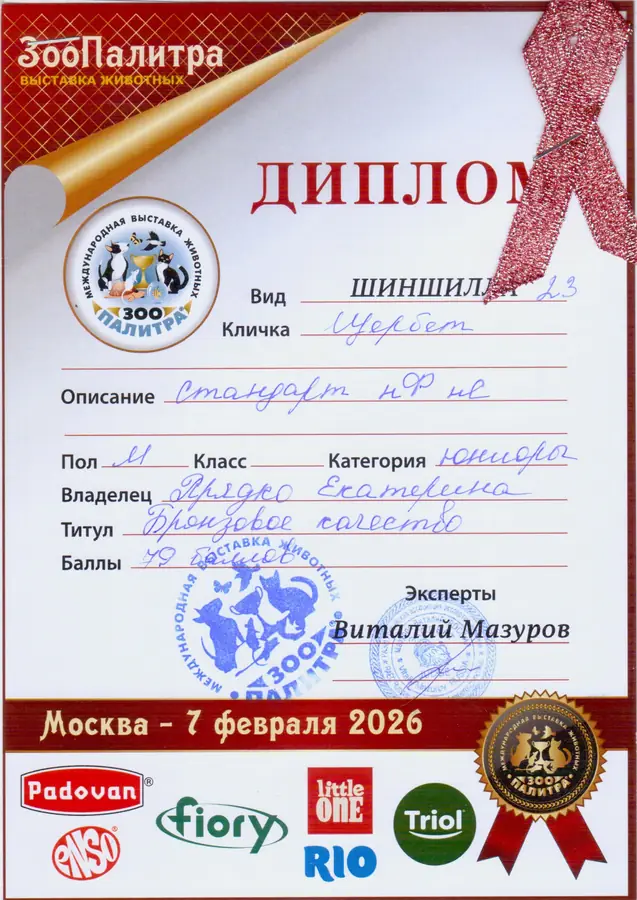 ЗооПалитра
ВЫСТАВКА ЖИВОТНЫХ
ДИПЛОМ
МЕЖДУНАРОДНАЯ ВЫСТАВКА ЖИВОТНЫХ
ЗОО
ПАЛИТРА
Вид ШИНШИЛЛА 23
Кличка Щербет
Описание стандарт нФ нС
Пол М Класс Категория юниоры
Владелец Прядко Екатерина
Титул Бронзовое качество
Баллы 79 баллов
МЕЖДУНАРОДНАЯ ВЫСТАВКА ЖИВОТНЫХ
ЗОО
ПАЛИТРА
Эксперты
Виталий Мазуров
Москва - 7 февраля 2026
МЕЖДУНАРОДНАЯ ВЫСТАВКА ЖИВОТНЫХ
ЗОО
ПАЛИТРА
Padovan®
fiory
little
ONE
Triol
ENSO®
RIO